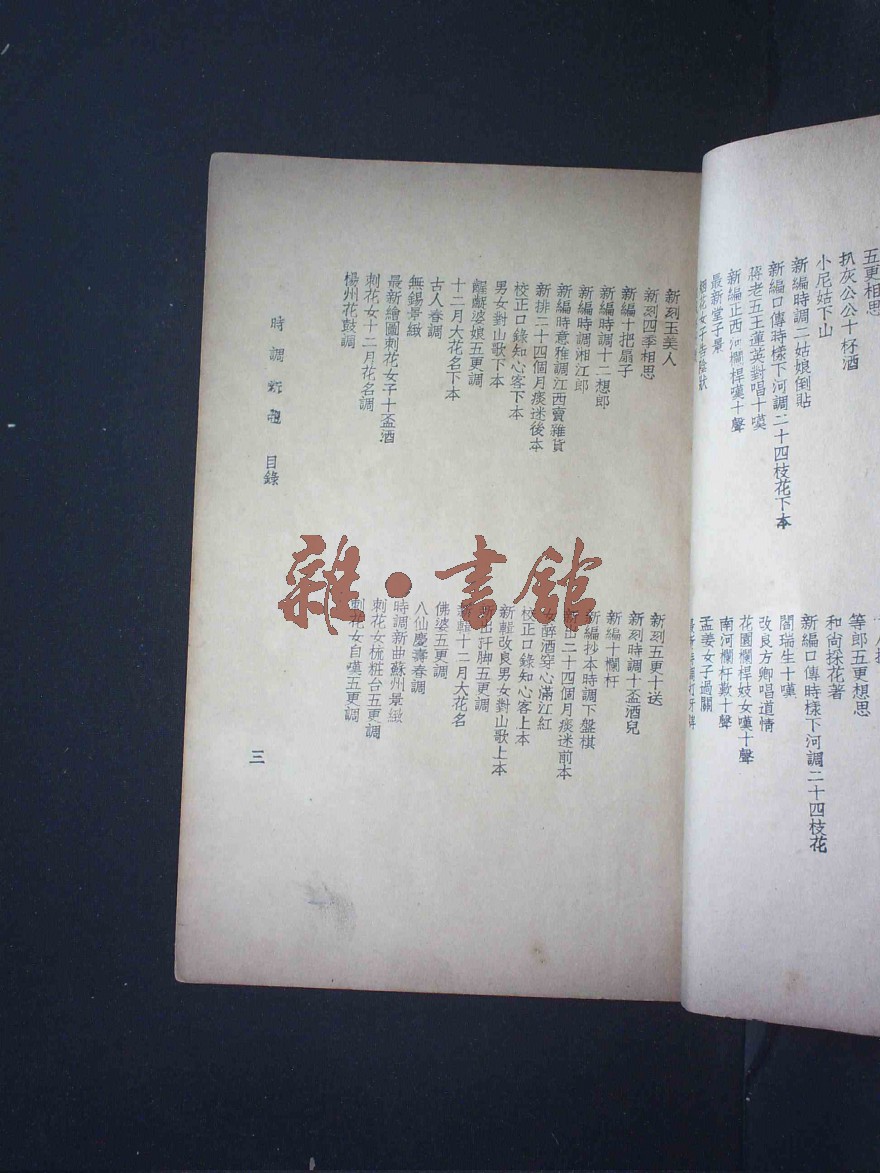 五更相思
扒灰公公十杯酒
小尼姑下山
新編時調二姑娘倒貼
新編口傳時樣下河調二十四枝花下本
蔣老五王蓮英對唱十嘆
新編正西河欄桿嘆十聲
最新堂子景
等郎五更想思
和尚採花著
新編口傳時樣下河調二十四枝花
閻瑞生十嘆
改良方卿唱道情
花園欄桿妓女嘆十聲
南河欄杆歎十聲
孟姜女子過關
新刻玉美人
新刻四季相思
新編十把扇子
新編時調十二想郎
新編時調湘江郎
新編時意雅調江西賣雜貨
新排二十四個月痰迷後本
校正口錄知心客下本
男女對山歌下本
婆娘五更調
十二月大花名下本
古人春調
無錫景緻
最新繪圖刺花女子十盃酒
刺花女十二月花名調
楊州花鼓調
新刻五更十送
新刻時調十盃酒兒
新編十欄杆
新編抄本時調下盤棋
新出二十四個月痰迷前本
醉酒穿心滿江紅
校正口錄知心客上本
新輯改良男女對山歌上本
出孖脚五更調
新輯十二月大花名
佛婆五更調
八仙慶壽春調
時調新曲蘇州景緻
刺花女梳粧台五更調
刺花女自嘆五更調
時調 目錄
三
雜·書館